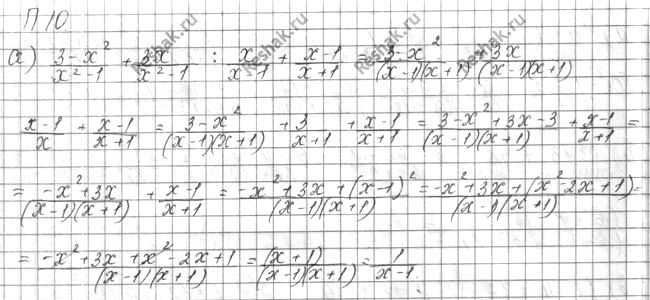 П 10
а) (3-x²)/(x²-1) + 3x/(x²-1) : x/(x-1) + (x-1)/(x+1) = (3-x²)/((x-1)(x+1)) + 3x/((x-1)(x+1))
(x-1)/x + (x-1)/(x+1) = (3-x²)/((x-1)(x+1)) + 3/(x+1) + (x-1)/(x+1) = (3-x²+3x-3)/((x-1)(x+1)) + (x-1)/(x+1) =
= (-x²+3x)/((x-1)(x+1)) + (x-1)/(x+1) = (-x²+3x+(x-1)²)/((x-1)(x+1)) = (-x²+3x+(x²-2x+1))/((x-1)(x+1)) =
= (-x²+3x+x²-2x+1)/((x-1)(x+1)) = (x+1)/((x-1)(x+1)) = 1/(x-1)
Reshak.ru
Reshak.ru
Reshak.ru
Reshak.ru